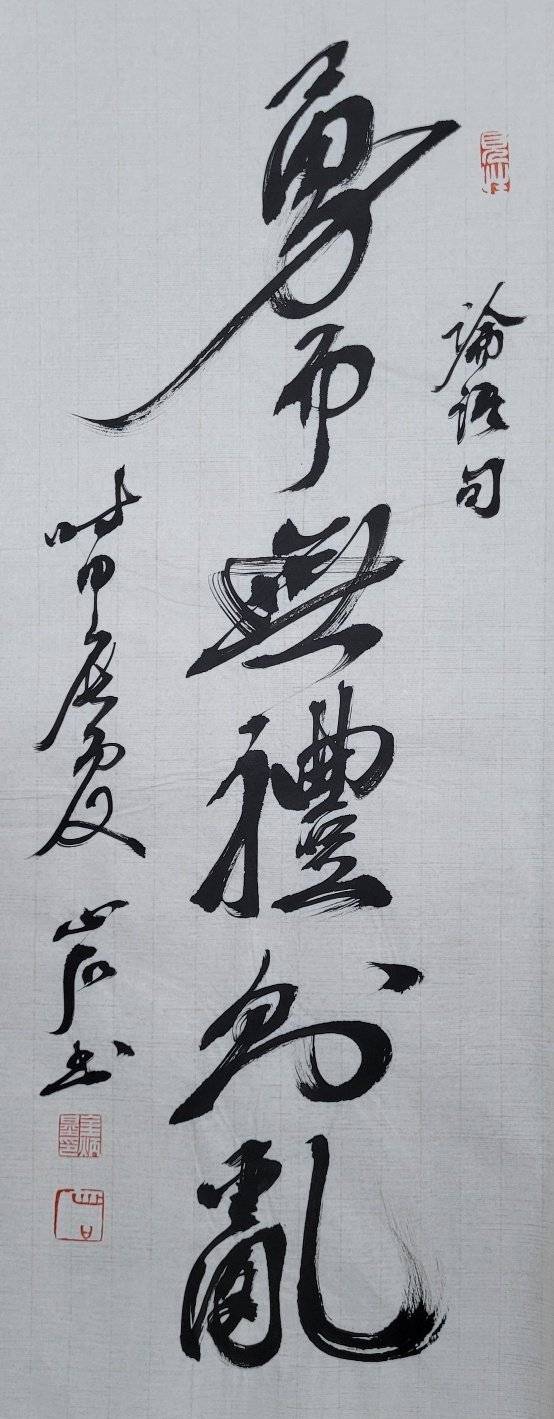 論語句
勇而無禮則亂
時甲辰夏 心石書